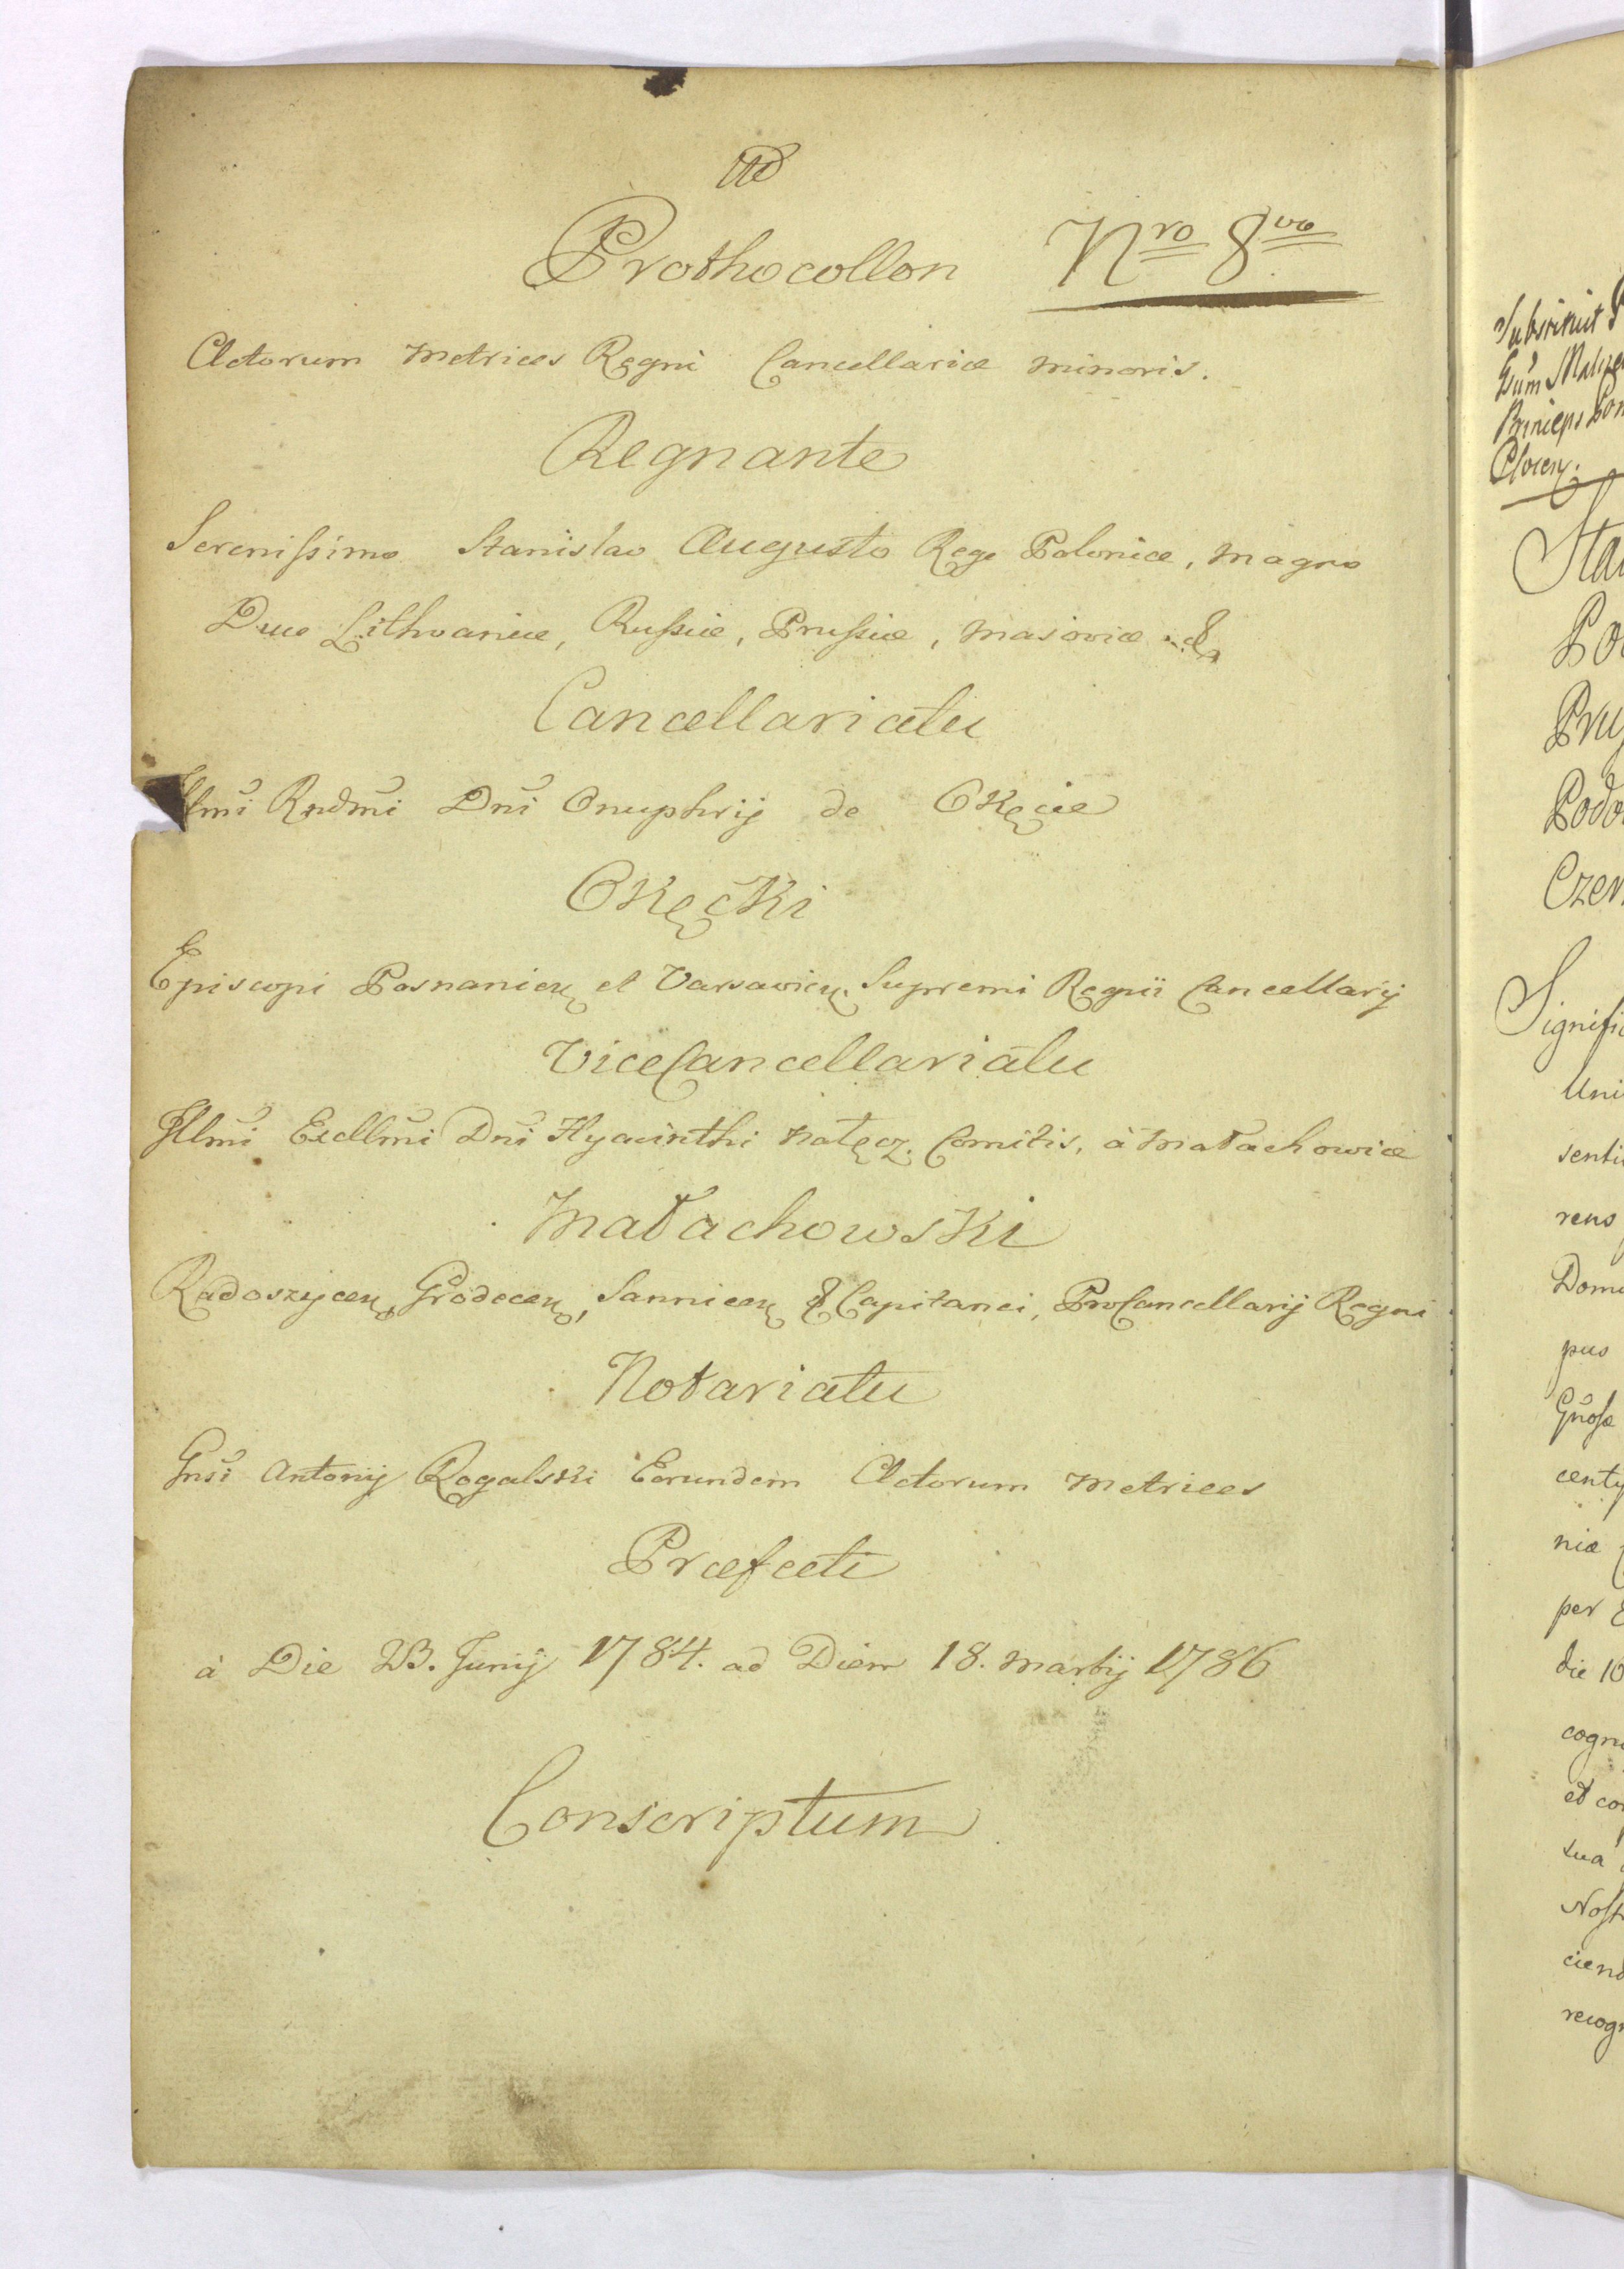 Prothocollon Nro 8vo
Actorum Metrices Regni Cancellariæ Minoris.
Regnante
Serenissimo Stanislao Augusto Rege Poloniæ, Magno
Duce Lithvaniæ, Russiæ, Prussiæ, Masoviæ &
Cancellariatu
Illmi Rndmi Dni Onuphrij de Okęcie
Okęcki
Episcopi Posnanien et Varsavien. Supremi Regni Cancellarij
ViceCancellariatu
Illmi Excllmi Dni Hyacinthi Nałęcz. Comitis, à Małachowice
Małachowski
Radoszycen, Grodecen, Sannicen & Capitanei, ProCancellarij Regni
Notariatu
Gnsi Antonij Rogalski Eorundem Actorum Metrices
Præfecti
à Die 23. Junij 1784. ad Diem 18. Martij 1786
Conscriptum
Subsripsit
Gsum
Princeps
Plocen.
Sta
Po
Pru
Podo
Czer
Signifi
Uni
senti
rens
Domi
pus
Gnose
centy
niæ
per
die 10
cogn
et co
sua
Nost
ciend
recog